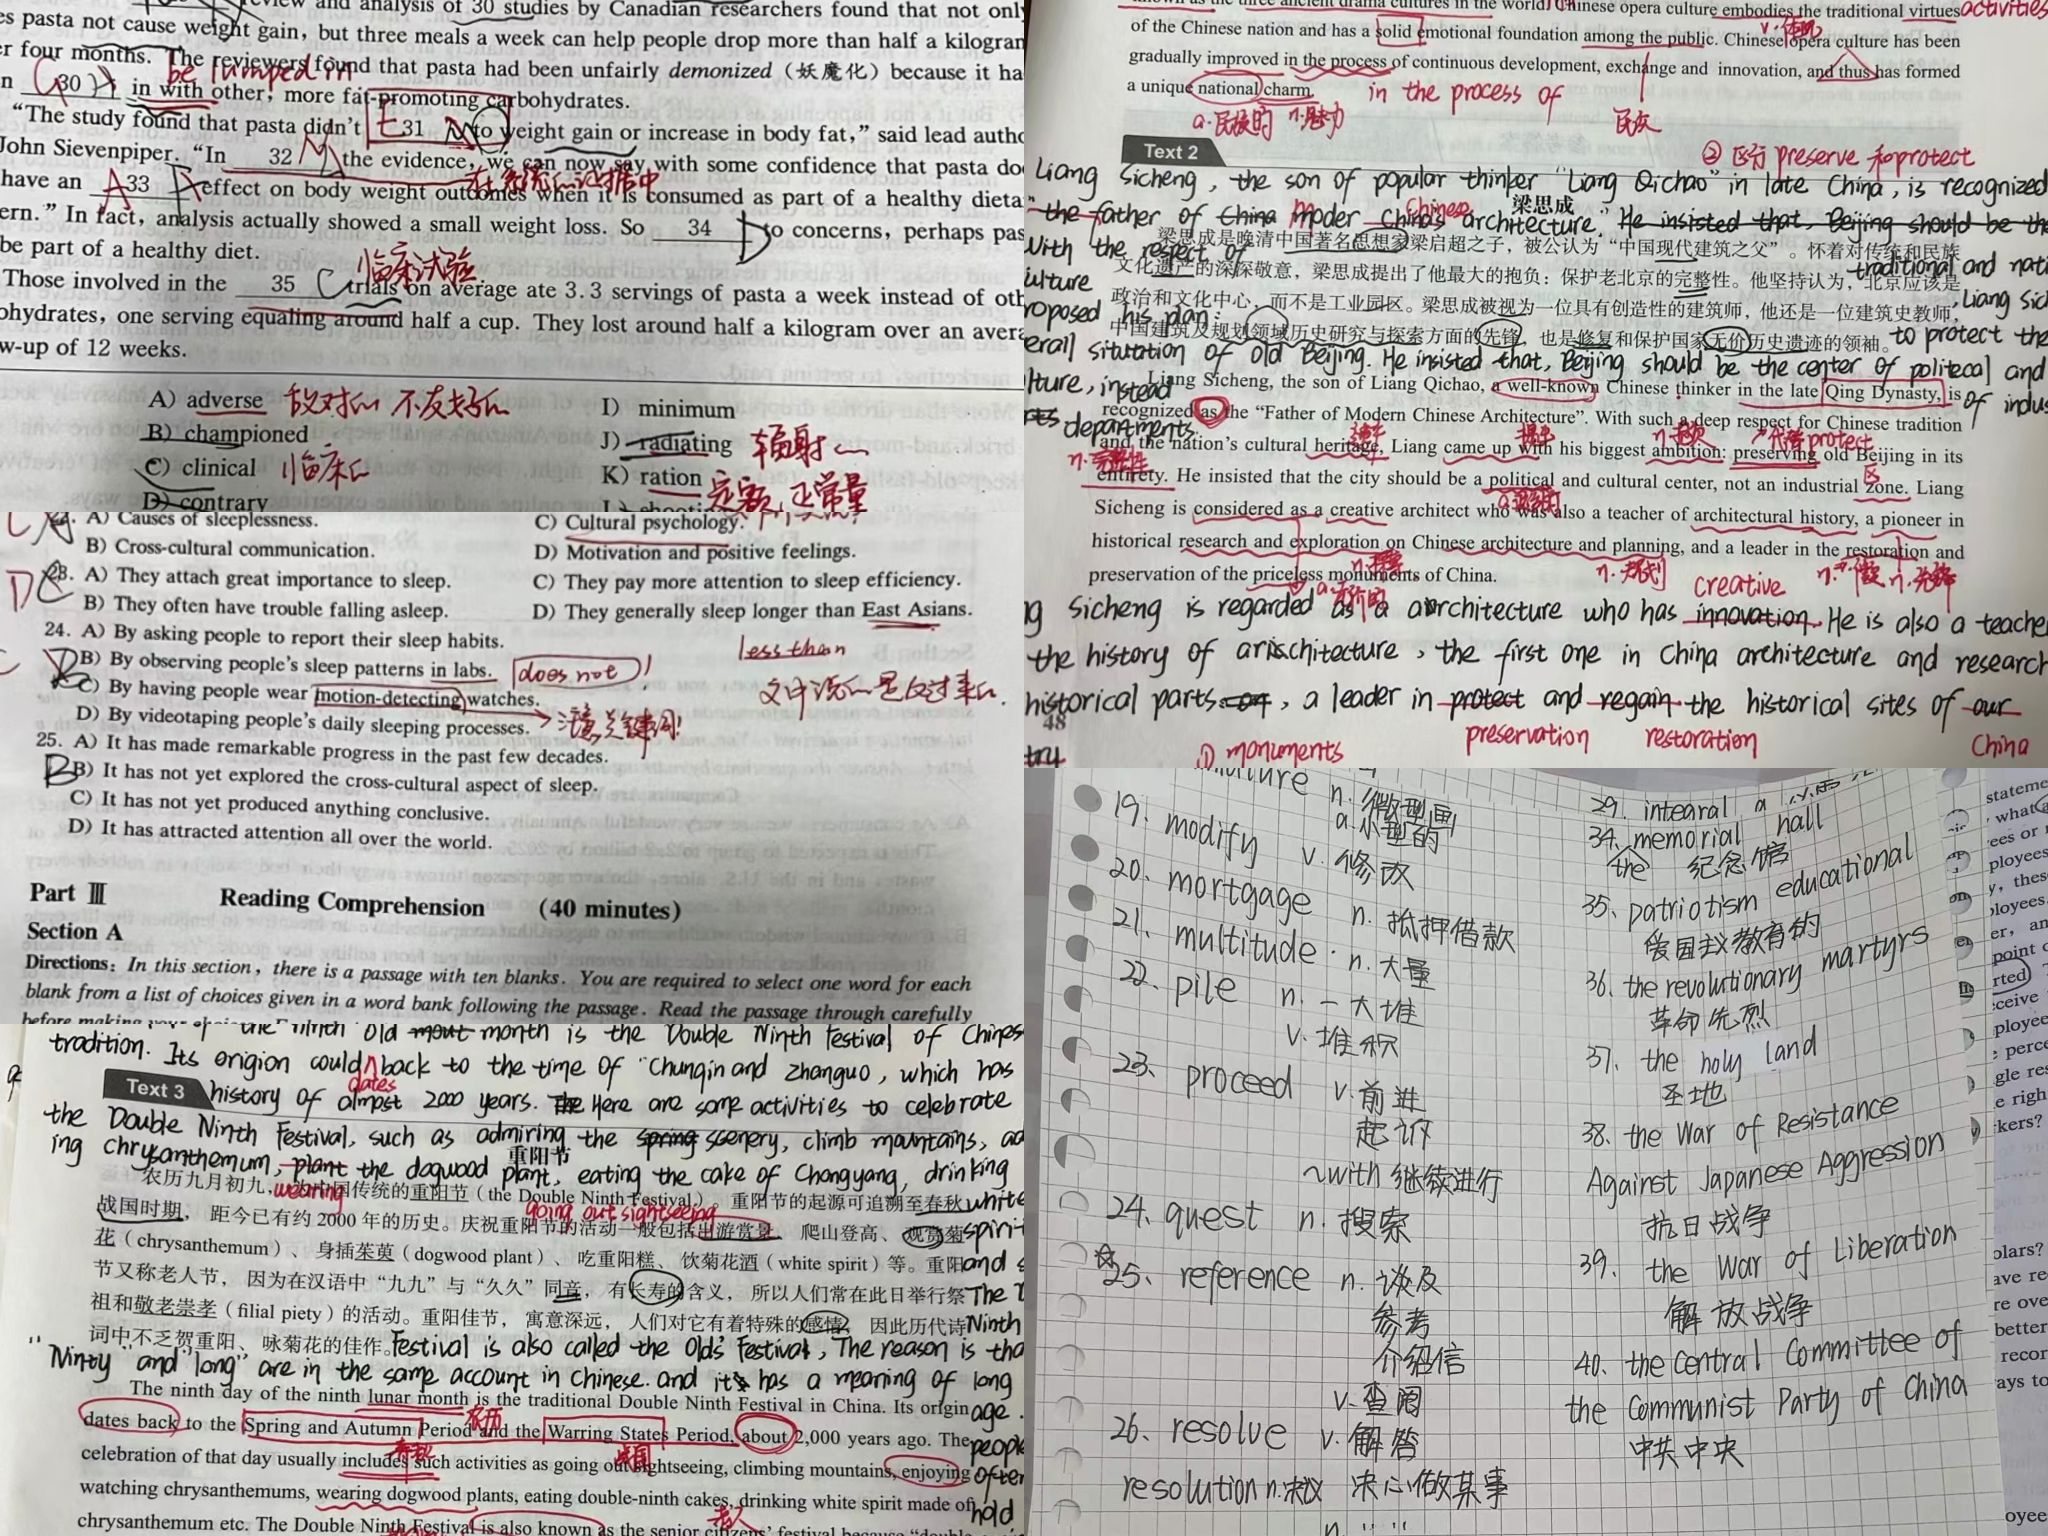 review and analysis of 30 studies by Canadian researchers found that not only
es pasta not cause weight gain, but three meals a week can help people drop more than half a kilogram
er four months. The reviewers found that pasta had been unfairly demonized (妖魔化) because it ha
be lumped in
n 30 in with other, more fat-promoting carbohydrates.
“The study found that pasta didn't 31 to weight gain or increase in body fat,” said lead autho
John Sievenpiper. “In 32 the evidence, we can now say with some confidence that pasta doe
have an 33 effect on body weight outcomes when it is consumed as part of a healthy dieta
ern.” In fact, analysis actually showed a small weight loss. So 34 to concerns, perhaps pas
be part of a healthy diet.
临床试验
Those involved in the 35 trials on average ate 3.3 servings of pasta a week instead of oth
ohydrates, one serving equaling around half a cup. They lost around half a kilogram over an avera
w-up of 12 weeks.
A) adverse 敌对的 不友好的
B) championed
C) clinical 临床的
D) contrary
I) minimum
J) radiating 辐射的
K) ration 定额, 正常量
A) Causes of sleeplessness.
B) Cross-cultural communication.
C) Cultural psychology.
D) Motivation and positive feelings.
23. A) They attach great importance to sleep.
B) They often have trouble falling asleep.
C) They pay more attention to sleep efficiency.
D) They generally sleep longer than East Asians.
less than
文中说的是反过来的.
24. A) By asking people to report their sleep habits.
B) By observing people's sleep patterns in labs. does not!
C) By having people wear motion-detecting watches.
D) By videotaping people's daily sleeping processes. 注意关键词!
25. A) It has made remarkable progress in the past few decades.
B) It has not yet explored the cross-cultural aspect of sleep.
C) It has not yet produced anything conclusive.
D) It has attracted attention all over the world.
Part Ⅲ Reading Comprehension (40 minutes)
Section A
Directions: In this section, there is a passage with ten blanks. You are required to select one word for each
blank from a list of choices given in a word bank following the passage. Read the passage through carefully
known as the three ancient drama cultures in the world. Chinese opera culture embodies the traditional virtues activities
of the Chinese nation and has a solid emotional foundation among the public. Chinese opera culture has been
gradually improved in the process of continuous development, exchange and innovation, and thus has formed
a unique national charm. in the process of
a.民族的 n.魅力 民族
Text 2
② 区分 preserve 和 protect
Liang Sicheng, the son of popular thinker "Liang Qichao" in late China, is recognized
"the father of China moder China's architecture." He insisted that, Beijing should be the
Chinese
梁思成
With the respect of
梁思成是晚清中国著名思想家梁启超之子，被公认为“中国现代建筑之父”。怀着对传统和民族
traditional and nati
文化遗产的深深敬意，梁思成提出了他最大的抱负：保护老北京的完整性。他坚持认为，北京应该是
ulture
政治和文化中心，而不是工业园区。梁思成被视为一位具有创造性的建筑师，他还是一位建筑史教师，
Liang Sic
roposed his plan:
中国建筑及规划领域历史研究与探索方面的先锋，也是修复和保护国家无价历史遗迹的领袖。
to protect the
erall situation of old Beijing. He insisted that, Beijing should be the center of politecal and
lture, instead
of indus
departments.
Liang Sicheng, the son of Liang Qichao, a well-known Chinese thinker in the late Qing Dynasty, is
recognized as the “Father of Modern Chinese Architecture”. With such a deep respect for Chinese tradition
and the nation's cultural heritage, Liang came up with his biggest ambition: preserving old Beijing in its
entirety. He insisted that the city should be a political and cultural center, not an industrial zone. Liang
Sicheng is considered as a creative architect who was also a teacher of architectural history, a pioneer in
historical research and exploration on Chinese architecture and planning, and a leader in the restoration and
preservation of the priceless monuments of China.
n.规划 creative
g Sicheng is regarded as a architecture who has innovation. He is also a teacher
the history of arischitecture, the first one in China architecture and research
historical parts, a leader in protect and regain the historical sites of our
48
① monuments preservation restoration China
Text 3
the ninth old mout month is the Double Ninth Festival of Chines
tradition. Its origion could back to the time of "Chunqin and Zhanguo, which has
dates
history of almost 2000 years. The Here are some activities to celebrate
the Double Ninth Festival, such as admiring the spring scenery, climb mountains, ad
ing chrysanthemum, plant the dogwood plant, eating the cake of Chongyang, drinking
重阳节
wearing
农历九月初九，为中国传统的重阳节（the Double Ninth Festival）。重阳节的起源可追溯至春秋
white
going out sightseeing
战国时期，距今已有约 2000 年的历史。庆祝重阳节的活动一般包括出游赏景、爬山登高、观赏菊
spirit
花（chrysanthemum）、身插茱萸（dogwood plant）、吃重阳糕、饮菊花酒（white spirit）等。重阳
and
节又称老人节，因为在汉语中“九九”与“久久”同音，有长寿的含义，所以人们常在此日举行祭
The
祖和敬老崇孝（filial piety）的活动。重阳佳节，寓意深远，人们对它有着特殊的感情，因此历代诗
Ninth
词中不乏贺重阳、咏菊花的佳作。
Festival is also called the Old's Festival, The reason is tha
"Ninty" and "long" are in the same account in Chinese. and it's has a meaning of long
age.
The ninth day of the ninth lunar month is the traditional Double Ninth Festival in China. Its origin
农历
dates back to the Spring and Autumn Period and the Warring States Period, about 2,000 years ago. The
people
春秋 战国
celebration of that day usually includes such activities as going out sightseeing, climbing mountains, enjoying
often
watching chrysanthemums, wearing dogwood plants, eating double-ninth cakes, drinking white spirit made of
hold
老人
chrysanthemum etc. The Double Ninth Festival is also known as the senior citizens' festival because “double
n. 微型画
a.小型的
19. modify v. 修改
20. mortgage n. 抵押借款
21. multitude n. 大量
22. pile n. 一大堆
v. 堆积
23. proceed v. 前进
起诉
~with 继续进行
24. quest n. 搜索
☆25. reference n. 谈及
参考
介绍信
v. 查阅
26. resolve v. 解答
resolution n.决议 决心做某事
29. integral a
34. memorial hall
the 纪念馆
35. patriotism educational
爱国主义教育的
36. the revolutionary martyrs
革命先烈
37. the holy land
圣地
38. the War of Resistance
Against Japanese Aggression
抗日战争
39. the War of Liberation
解放战争
40. the Central Committee of
the Communist Party of China
中共中央